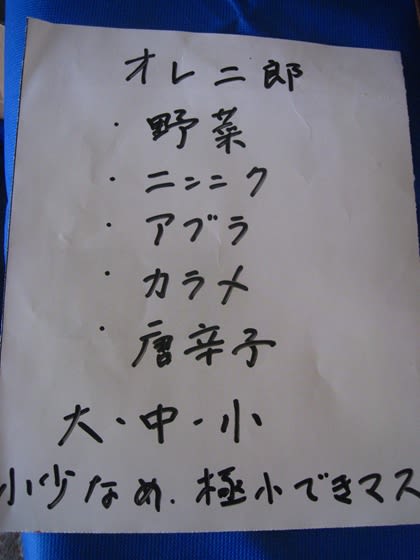 オレ二郎
・野菜
・ニンニク
・アブラ
・カラメ
・唐辛子
大・中・小
小少なめ、極小できマス